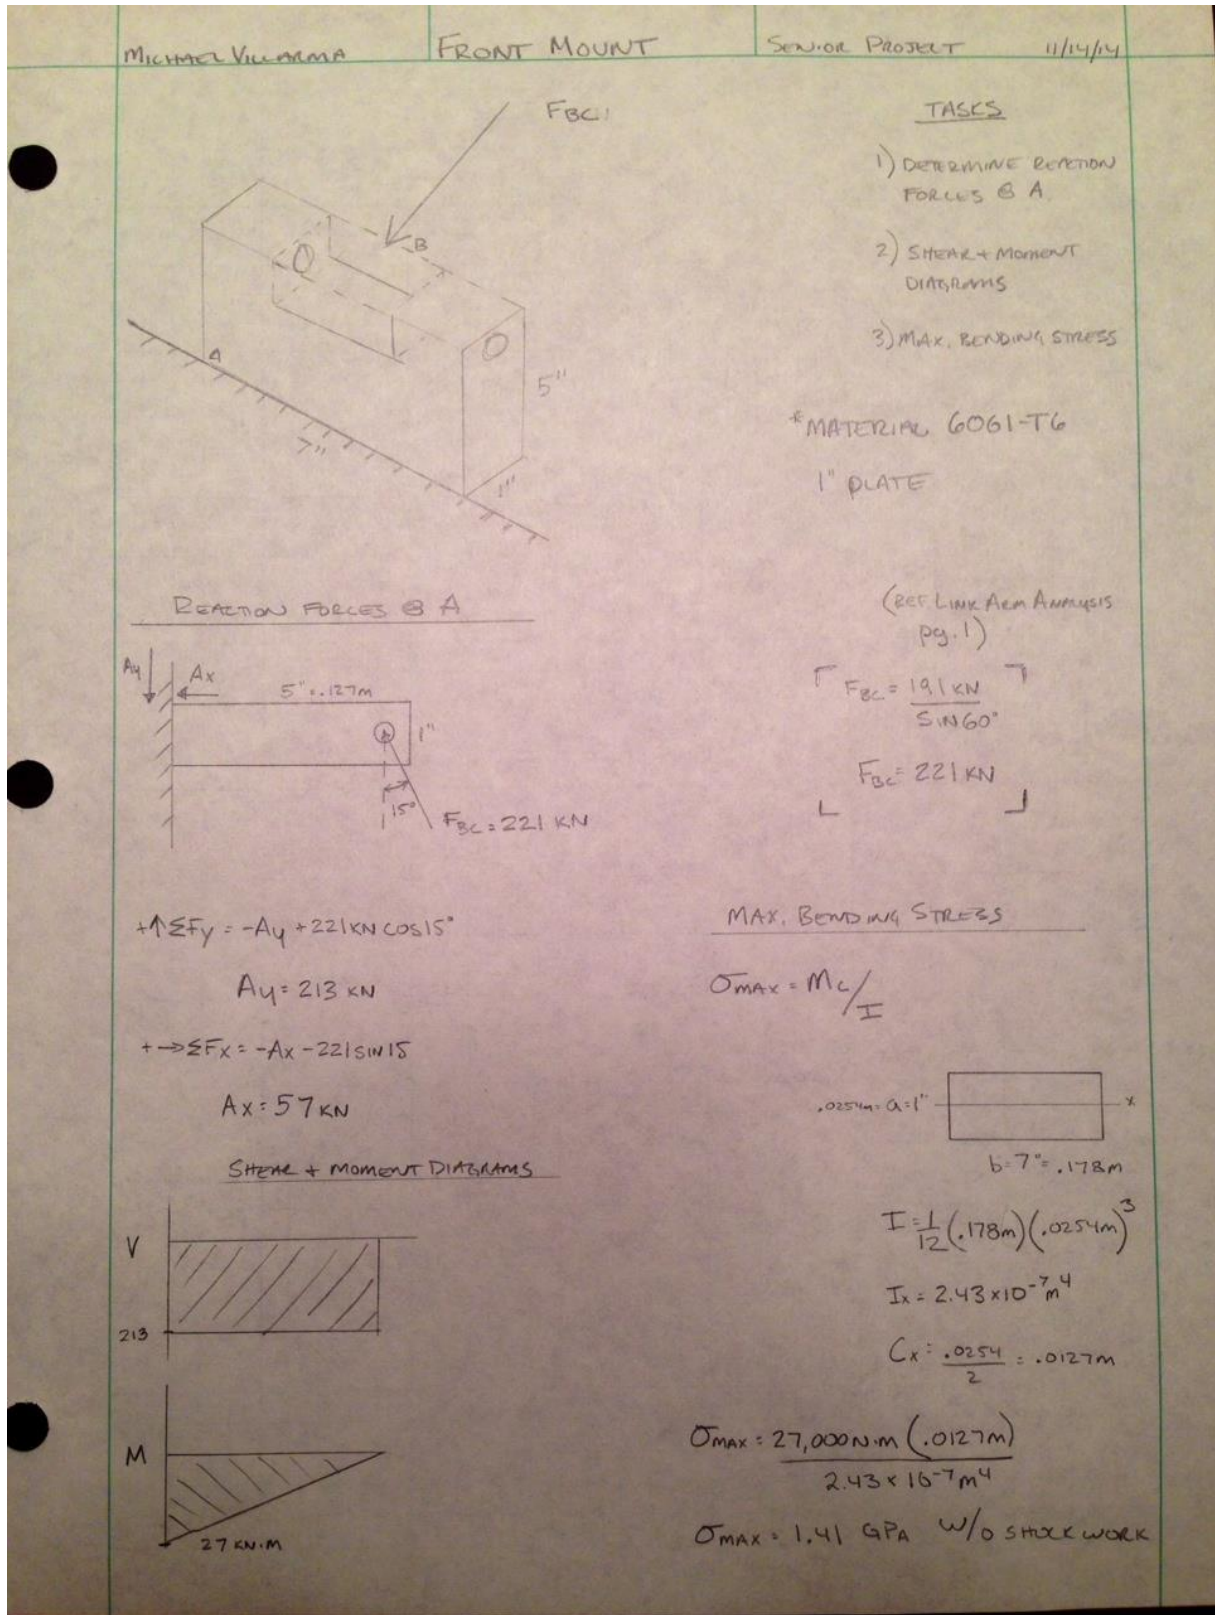 MICHAEL VILLARMA FRONT MOUNT SENIOR PROJECT 11/14/14
FBC
TASKS
1) DETERMINE REACTION
FORCES @ A
2) SHEAR + MOMENT
DIAGRAMS
3) MAX. BENDING STRESS
B
A
5"
7"
1"
*MATERIAL 6061-T6
1" PLATE
REACTION FORCES @ A
(REF. LINK ARM ANALYSIS
pg. 1)
Ay
Ax
5" = .127m
1"
15°
FBC = 221 KN
FBC = 191 KN
SIN 60°
FBC = 221 KN
+↑ΣFy = -Ay + 221KN COS15°
Ay = 213 KN
+→ΣFx = -Ax - 221 SIN 15
Ax = 57 KN
SHEAR + MOMENT DIAGRAMS
V
213
M
27 KN·M
MAX. BENDING STRESS
σMAX = Mc/I
.0254m = a = 1"
x
b = 7" = .178m
I = 1/12 (.178m)(.0254m)³
Ix = 2.43 x 10⁻⁷ m⁴
Cx = .0254/2 = .0127m
σMAX = 27,000 N·m (.0127m)
2.43 x 10⁻⁷ m⁴
σMAX = 1.41 GPA W/O SHOCK WORK